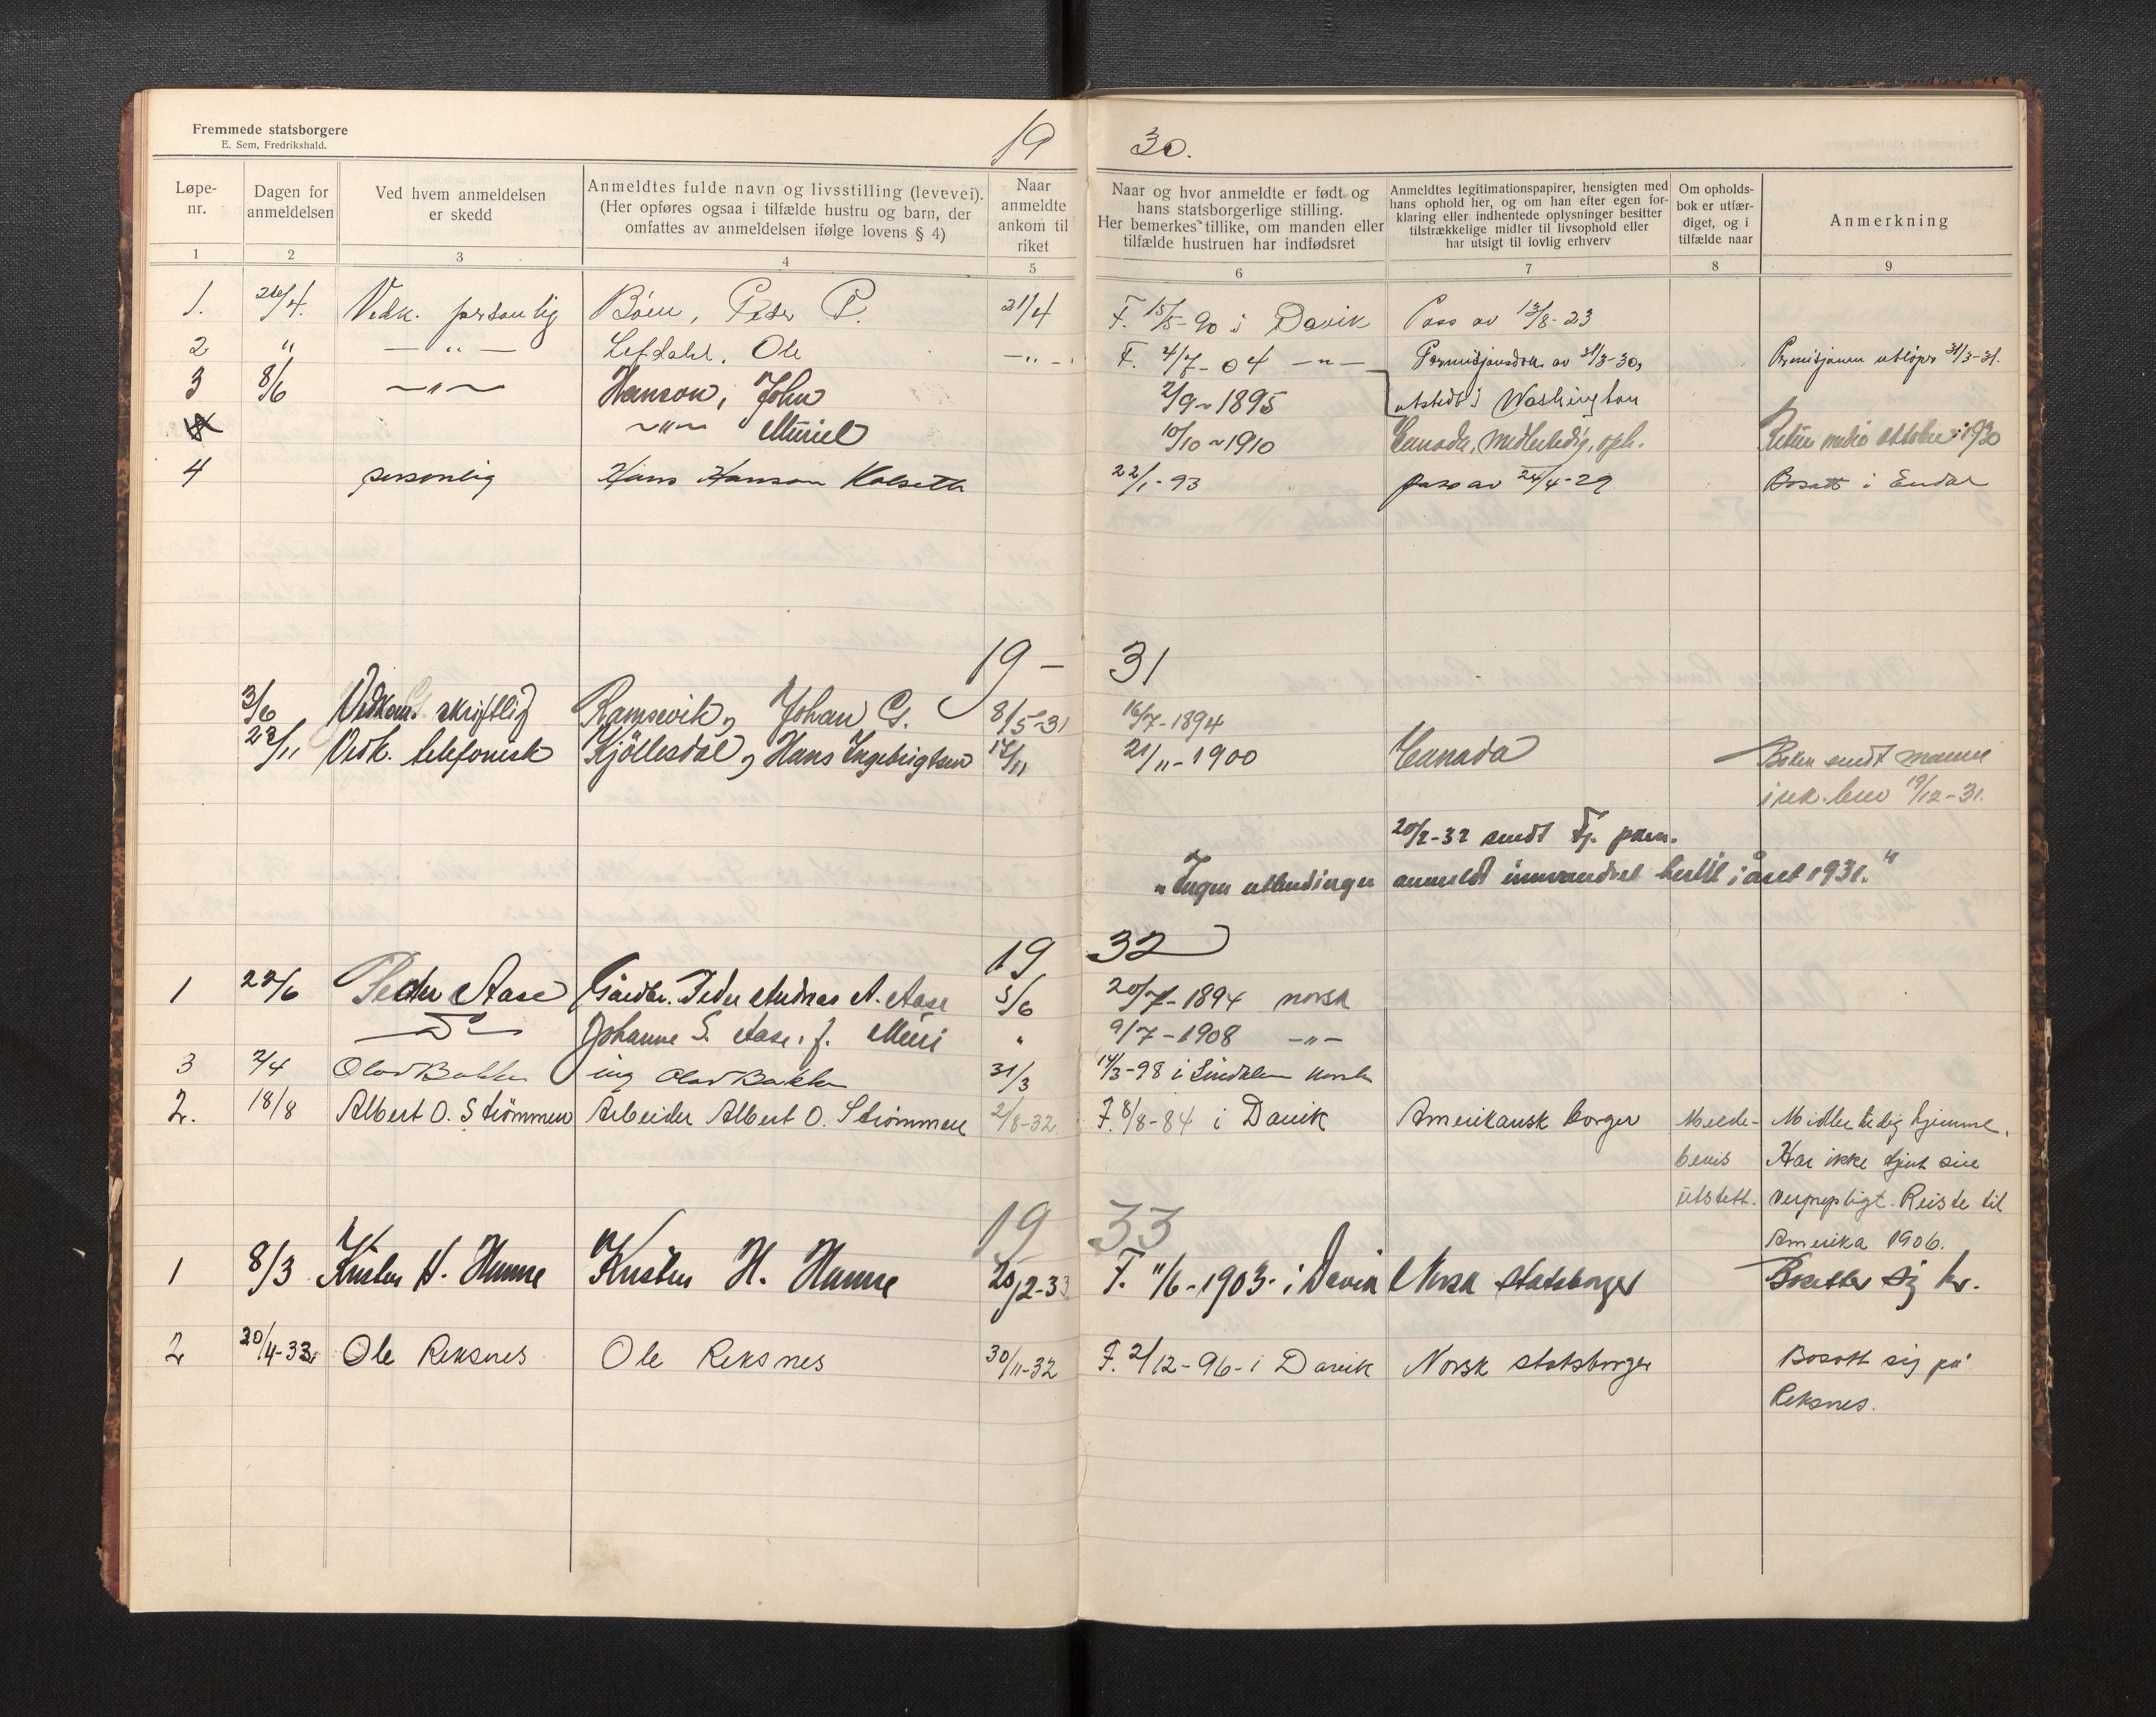 Fremmede statsborgere
E. Sem, Fredrikshald.
19 30.
Løpe-
nr.
Dagen for
anmeldelsen
Ved hvem anmeldelsen
er skedd
Anmeldtes fulde navn og livsstilling (levevei).
(Her opføres ogsaa i tilfælde hustru og barn, der
omfattes av anmeldelsen ifølge lovens § 4)
Naar
anmeldte
ankom til
riket
Naar og hvor anmeldte er født og
hans statsborgerlige stilling.
Her bemerkes tillike, om manden eller
tilfælde hustruen har indfødsret
Anmeldtes legitimationspapirer, hensigten med
hans ophold her, og om han efter egen for-
klaring eller indhentede oplysninger besitter
tilstrækkelige midler til livsophold eller
har utsigt til lovlig erhverv
Om opholds-
bok er utfær-
diget, og i
tilfælde naar
Anmerkning
1 2 3 4 5 6 7 8 9
1. 26/4. Vedk. personlig Böen, Peder P. 21/4 F. 15/5-90 i Davik Pass av 13/8-23
2 " — " — Lefdahl, Ole — " — F. 4/7-04 — " — Permisjonsdok. av 31/3-30, Permisjonen utlöper 31/3-31.
3 8/6 — " — Hanson, John 2/9-1895 utstedt i Washington
— " — Muriel 10/10-1910 Canada, midlertidig, oph. Retur medio oktober 1930
4 personlig Hans Hanson Kolseth 22/1-93 pass av 24/4-29 Bosatt i Endal
19 — 31
3/6 Vedkom. skriftlig Ramsevik, Johan G. 8/5-31 16/7-1894
23/11 Vedk. telefonisk Kjöllesdal, Hans Ingebrigtsen 14/11 21/11-1900 Canada — Boken sendt manne
i rek. brev 19/12-31.
20/2-32 sendt Fj. pkm.
"Ingen utlendinger anmeldt innvandret hertil i året 1931."
19 32
1 22/6 Peder Aase Gårdbr. Peder Andreas A. Aase 5/6 20/7-1894 norsk
— Do — Johanne S. Aase, f. Müri " 9/7-1908 — " —
3 2/4 Olav Bakken ing Olav Bakken 31/3 14/3-98 i Norsk
2. 18/8 Albert O. Strömmen Arbeider Albert O. Strömmen 2/8-32 F. 8/8-84 i Davik Amerikansk borger Melde- Midlertidig hjemme.
bevis Har ikke tjent sin
utstett. vernepligt. Reiste til
Amerika 1906.
19 33
1 8/3 Kristen H. Hamre Kristen H. Hamre 20/2-33 F. 11/6-1903- i Davik Norsk statsborger Bosetter sig her.
2 20/4-33. Ole Reksnes Ole Reksnes 30/11-32 F. 2/12-96- i Davik Norsk statsborger Bosatt sig på
Reksnes.